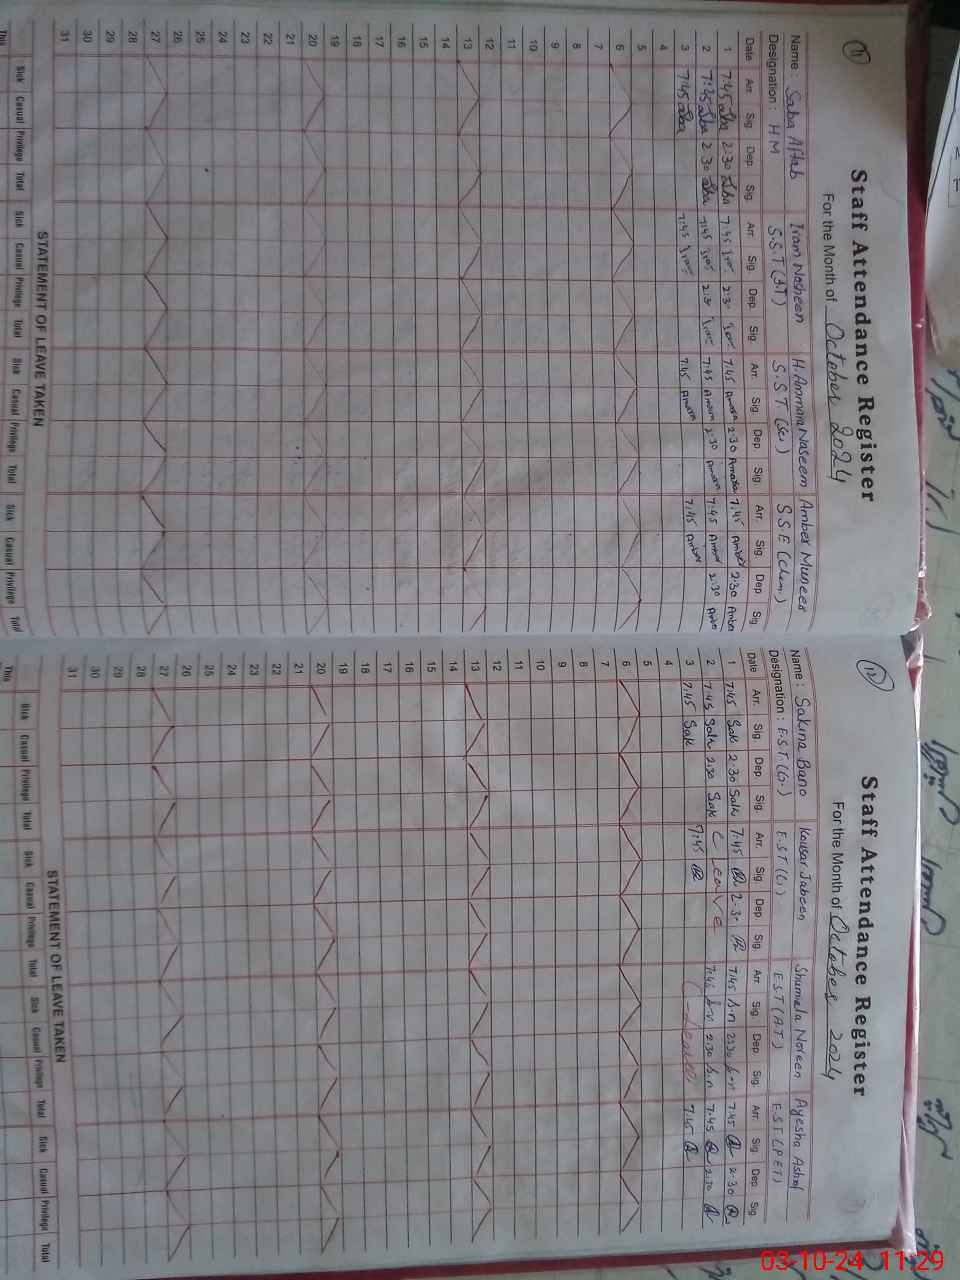 11
Staff Attendance Register
For the Month of October 2024
Name : Saba Aftab Iram Nosheen H. Ammara Naseem Amber Munees
Designation : H M S.S.T (I.T) S.S.T (Sc) SSE (Chem.)
Date Arr. Sig. Dep. Sig. Arr. Sig. Dep. Sig. Arr. Sig. Dep. Sig. Arr. Sig. Dep. Sig.
1 7:45 Saba 2:30 Saba 7:45 Iram 2:30 Iram 7:45 Amara 2:30 Amara 7:45 Amber 2:30 Amber
2 7:45 Saba 2:30 Saba 7:45 Iram 2:30 Iram 7:45 Amara 2:30 Amara 7:45 Amber 2:30 Amber
3 7:45 Saba 7:45 Iram 7:45 Amara 7:45 Amber
4
5
6
7
8
9
10
11
12
13
14
15
16
17
18
19
20
21
22
23
24
25
26
27
28
29
30
31
STATEMENT OF LEAVE TAKEN
Sick Casual Privilege Total Sick Casual Privilege Total Sick Casual Privilege Total Sick Casual Privilege Total
This
12
Staff Attendance Register
For the Month of October 2024
Name : Sakina Bano Kousar Jabeen Shumela Noreen Ayesha Ashraf
Designation : E.S.T (G.) E.S.T (G) E.S.T (A.T) E.S.T (P.E.T)
Date Arr. Sig. Dep. Sig. Arr. Sig. Dep. Sig. Arr. Sig. Dep. Sig. Arr. Sig. Dep. Sig.
1 7:45 Sak 2:30 Sak 7:45 2:30 7:45 S.n 2:30 S.n 7:45 2:30
2 7:45 Sak 2:30 Sak C Leave 7:45 S.n 2:30 S.n 7:45 2:30
3 7:45 Sak 7:45 Leave 7:45
4
5
6
7
8
9
10
11
12
13
14
15
16
17
18
19
20
21
22
23
24
25
26
27
28
29
30
31
STATEMENT OF LEAVE TAKEN
Sick Casual Privilege Total Sick Casual Privilege Total Sick Casual Privilege Total Sick Casual Privilege Total
This
03-10-24 11:29